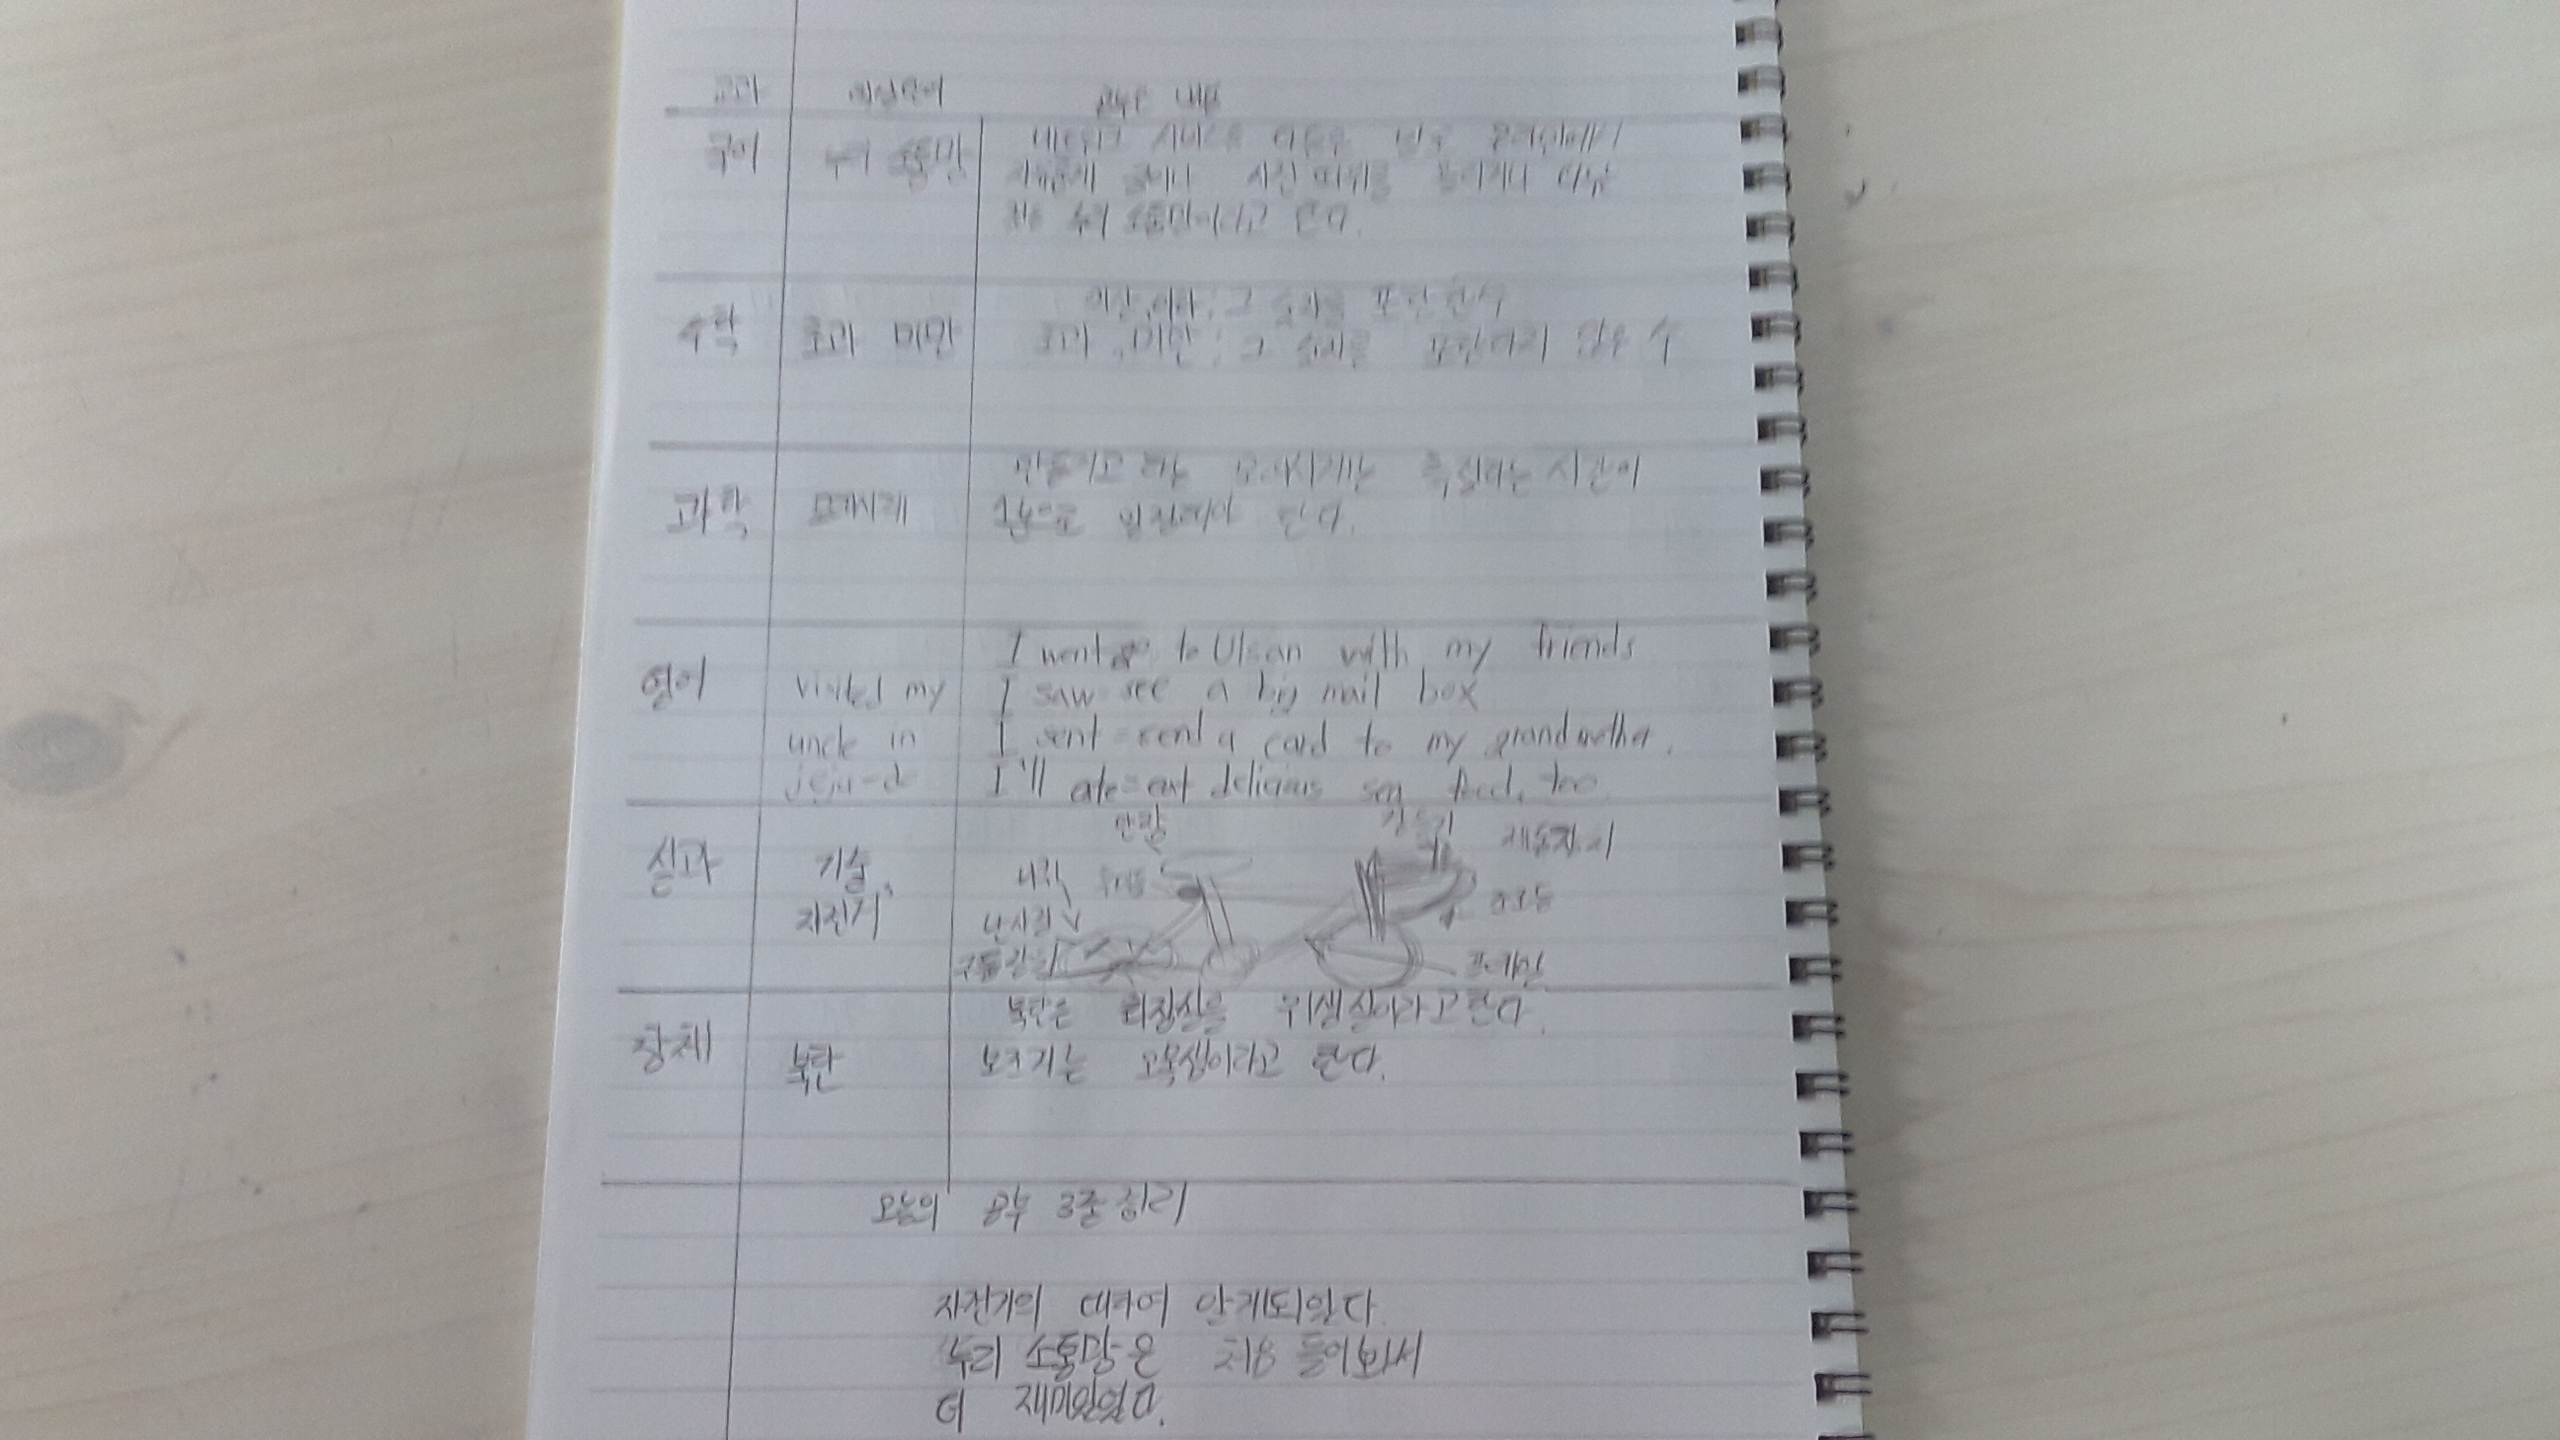 교과 핵심단어 배운 내용
국어 누리 소통망 네트워크 서비스를 다듬은 말로 온라인에서
자유롭게 글이나 사진 따위를 올리거나
누리 소통망이라고 한다.
이상, 이하 : 그 숫자를 포함한 수
수학 초과 미만 초과, 미만 : 그 숫자를 포함하지 않은 수
만들기고 하는 모래시계는 측정하는 시간이
과학 모래시계 일정해야 한다.
I went go to Ulsan with my friends
영어 visited my I saw=see a big mail box
uncle in I sent=send a card to my grandmother.
jeju-do I'll ate=eat delicious sea food, too.
안장
실과 기술, 자전거
프레임
북한은 화장실을 위생실이라고 한다.
창체 북한 보조개는 오목샘이라고 한다.
오늘의 공부 3줄 정리
자전거의 대하여 알게되었다.
누리 소통망은 처음 들어봐서
더 재미있었다.